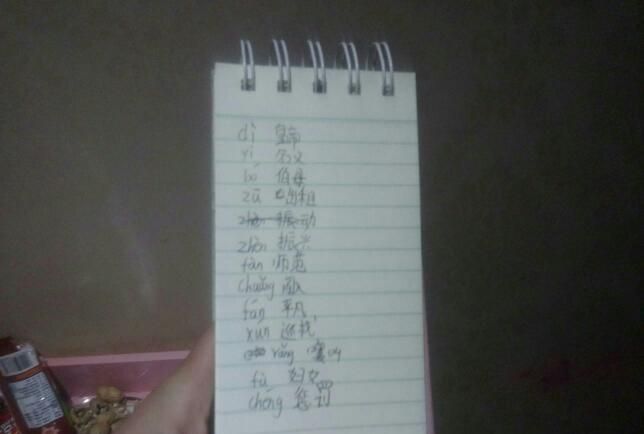 dì 皇帝
yì 名义
bó 伯母
zū 出租
zhèn 振动
zhèn 振兴
fàn 师范
chuǎng 闯
fán 平凡
xún 巡
rǎng 嚷叫
fù 妇女
chéng 惩罚